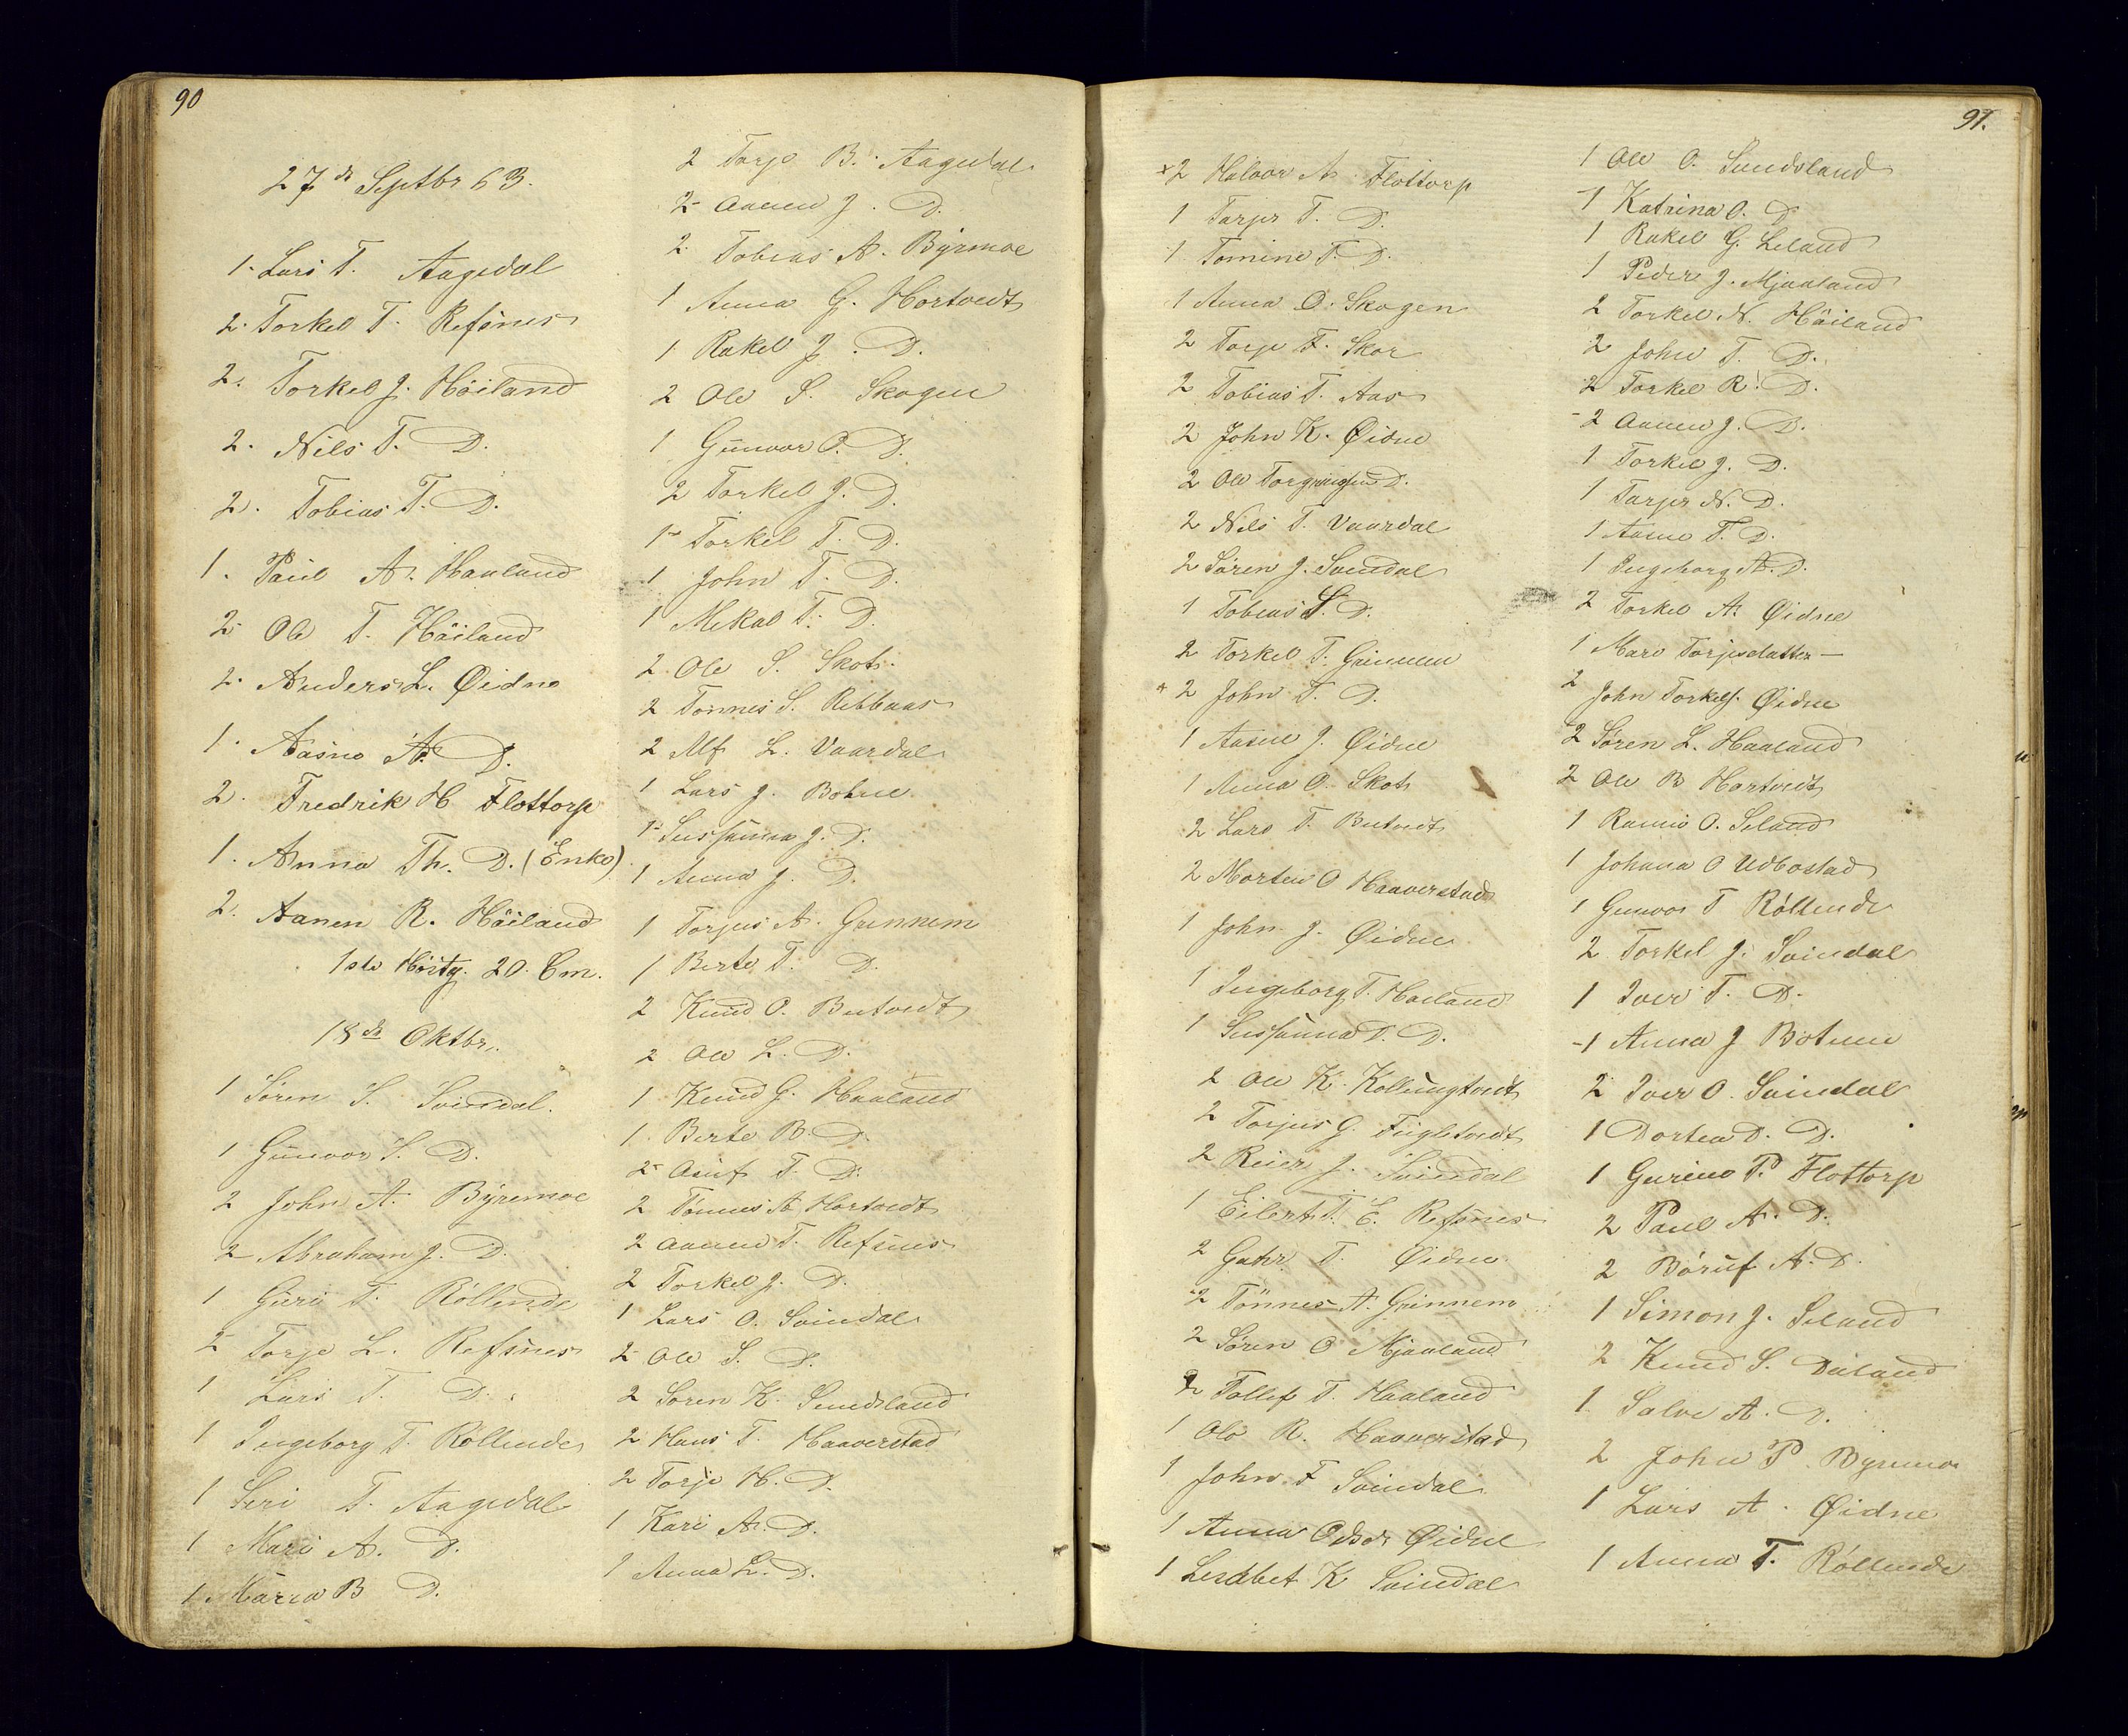 90
27de Septbr 63.
1. Lars T. Aagedal
2. Torkel T. Refsnes
2. Torkel J. Höiland
2. Nils T. D.
2. Tobias T. D.
1. Paul A. Haaland
2. Ole T. Höiland
2. Anders L. Øidne
1. Aasne A. D.
2. Fredrik H Flottorp
1. Anna Th. D. (Enke)
2. Aanen R. Höiland
1ste Höstg. 20. Cm.
18de Oktbr.
1 Sören S. Svindal.
1 Gunvor S. D.
2 John A. Byremoe
2 Abraham J. D.
1 Guri T. Röllende
2 Torje L. Refsnes
1 Lars T. D.
1 Ingeborg T. Röllende
1 Seri T. Aagedal
1 Mari A. D.
1. Maria B D.
2 Torje B. Aagedal
2 Aanen J. D.
2 Tobias A. Byrmoe
1 Anna G. Hortvedt
1 Rakel J. D.
2 Ole S. Skogen
1 Gunvor O. D.
2 Torkel J. D.
1 Torkel T. D.
1 John T. D.
1 Mikal T. D.
2 Ole S. Skot
2 Tönnes S. Rebbaas
2 Alf L. Vaardal
1 Lars J. Bohne
1 Sussanna J. D.
1 Anna J. D.
1 Torjus A. Grinnem
1 Berte T. D.
2 Knud O. Butvedt
2 Ole L. D.
1 Knud G. Haaland
1. Berte B. D.
2 Asuf T. D.
2 Tönnes A Hortvedt
2 Aanen T. Refsnes
2 Torkel J. D.
1 Lars O. Svindal
2 Ole S. D.
2 Sören K. Sundsland
2 Hans T. Haaverstad
2 Torje H. D.
1 Kari A. D.
1 Anna L. D.
91.
x2 Halvor A. Flottorp
1 Tarjer T. D.
1 Tomine T. D.
1 Anna O. Skogen
2 Torje F. Skor
2 Tobias T. Aas
2 John K. Øidne
2 Ole D.
2 Nils T. Vaardal
2 Sören J. Svindal
1 Tobias S. D.
2 Torkel T. Grinnem
+ 2 John T. D.
1 Aasne J. Øidne
1 Anna O. Skot
2 Lars T. Butvedt
2 Morten O Haaverstad
1 John J. Øidne
1 Ingeborg T. Høiland
1 Sussanna T. D.
2 Ole K. Kollungtvedt
2 Torjus G. Fugletvedt
2 Reier J. Svindal
1 Eilert T. E. Refsnes
2 Gahr T. Øidne
2 Tönnes A. Grinnem
2 Søren O Mjaaland
2 Tollef T. Haaland
1 Ole R. Haaverstad
1 John F Svindal
1 Anna Øidne
1 Lisabet K Svindal
1 Ole O. Sundsland
1 Katrina O. D
1 Rakel G. Leland
1 Peder J. Mjaaland
2 Torkel N. Höiland
2 John T. D.
2 Torkel R. D.
2 Aanen J. D.
1 Torkel J. D.
1 Tarjer N. D.
1 Aasne T. D.
1 Ingeborg A. D.
2 Torkel A. Øidne
1 Mari Torjesdatter —
2 John Torkels. Øidne
2 Søren L. Haaland
2 Ole B Hortvedt
1 O. Seland
1 Johana O Udbostad
1 Gunvor T Röllende
2 Torkel J. Svindal
1 Iver T. D.
1 Anna J Botnene
2 Iver O. Svindal
1 Dortea D. D.
1 Gurine P. Flottorp
2 Paul A. D.
2 Börüf A. D.
1 Simon J. Seland
2 Knud S. Duland
1 Salve A. D.
2 John P. Byrmoe
1 Lars A. Øidne
1 Anna T. Röllende